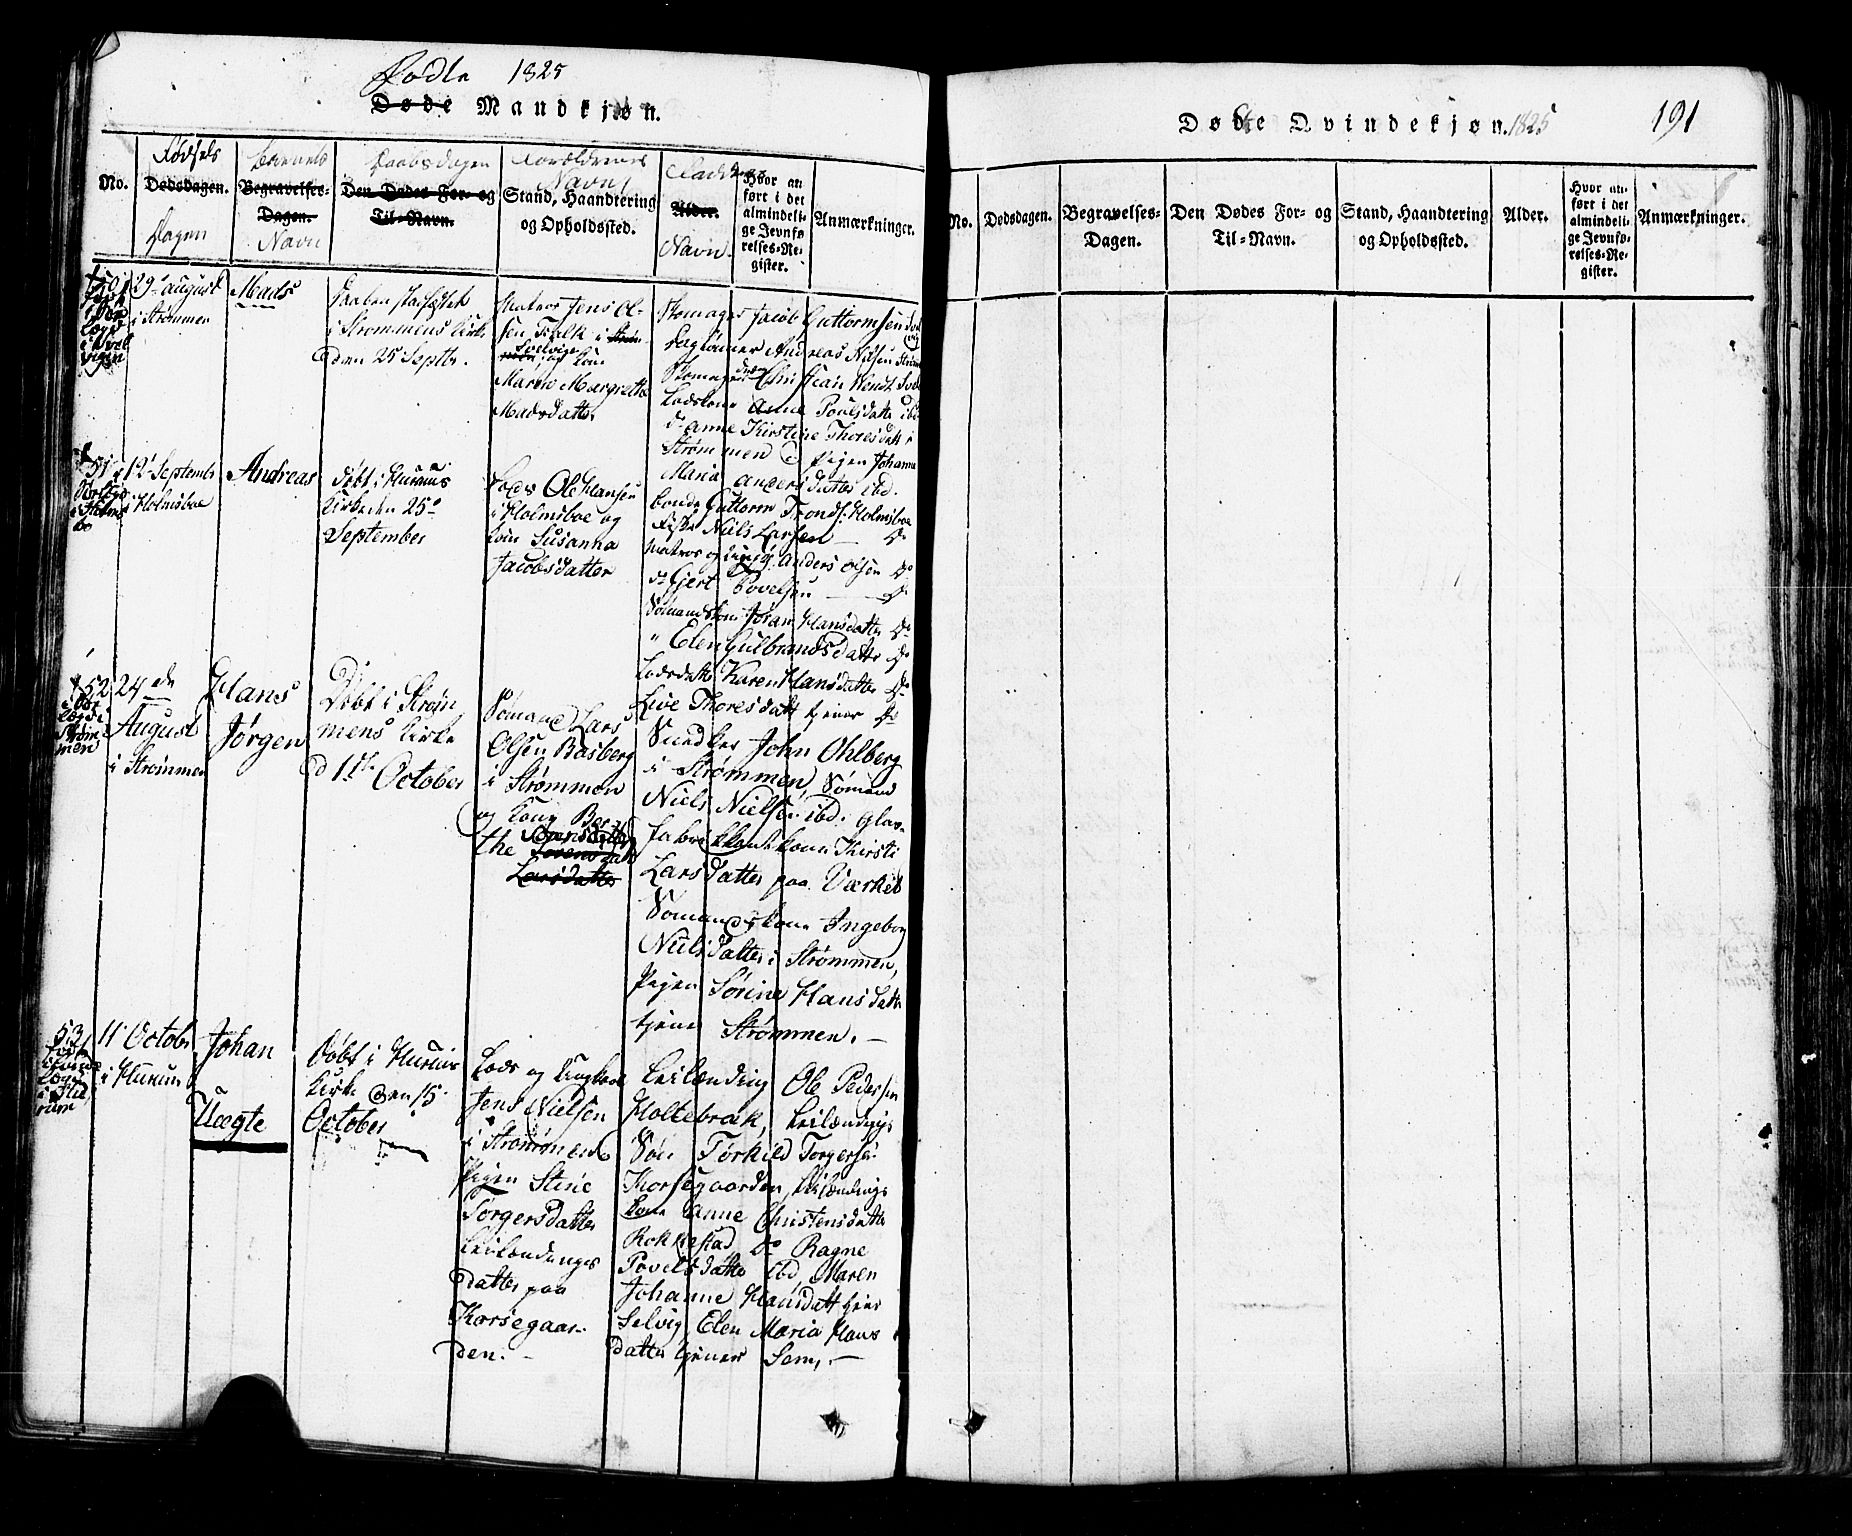 Fødte 1825
Døde Mandkjøn.
No.
Fødsels
Dødsdagen.
Dagen
Barnets
Begravelses-
Dagen.
Navn
Daabsdagen
Den Dødes For- og
Til-Navn.
Forældrenes
Navn,
Stand, Haandtering
og Opholdssted.
Faddernes
Alder.
Navn.
Hvor an-
ført i det
almindeli-
ge Jevnfø-
relses-Re-
gister.
Anmærkninger.
29 august
i Strømmen
Mads
Daaben stadfæstet
i Strømmens Kirke
den 25 Septbr.
Matros Jens Ol-
sen Falk i Strøm-
Svelvigen
men, og Kone
Maren Margrethe
Madsdatter
Skomager Jacob Guttormsen
Dagløner Andreas Nilsen
Skomager Christian Wendt
Lodskone Anne Poulsdatter ibd
do Anne Kirstine Thoresdatt i
Strømmen Pigen Johanne
Maria Andersdatter ibd.
51
12 Septembr
i Holmsboe
Andreas
døbt i Hurums
Kirke den 25de
September
Lods Ole Hansen
i Holmsboe og
Kone Susanna
Jacobsdatter
bonde Guttorm Trondsen Holmsboe
Niels Larsen do
Matros og Anders Olsen do
do Gjert Povelsen do
Sømandskone Joran Hansdatter do
" Elen Gulbrandsdatter do
Lodsdatter Karen Hansdatter do
Live Thoresdatt tjener do
52
i Strøm-
men
24de
August
i Strømmen
Hans
Jørgen
Døbt i Strøm
mens Kirke
d 1ste October
Sømand Lars
Olsen Basberg
i Strømmen
og Kone Ber-
the Sørensdatter
Larsdatter
Snedker John Ohlberg
i Strømmen, Sømand
Niels Nielsen ibd. Glas-
fabrikkone Kirsti
Larsdatter paa Værket
Sømandskone Ingeborg
Nielsdatter i Strømmen,
Pigen Sørine Hansdatter
tjener Strømmen.
53
i Hu-
rum
11 Octobr
i Hurum
Johan
Uægte
døbt i Hurums
Kirke den 15
October
Lods og Ungkarl
Jens Nielsen
i Strømmen
Pigen Stine
Torgersdatter
Leilændings
datter paa
Korsegaar-
den.
Leilænding Ole Pedersen
Holtebrak, Leilændings
Søn Torkild Torgersen
Korsegaarden, Leilændings
Kone Anne Christensdatter
Rokkestad do Ragne
Povelsdatter ibd, Maren
Johanne Hansdatt tjener
Selvig Elen Maria Hans
datter tjener Sem.
Døde Qvindekjøn. 1825
191
No.
Dødsdagen.
Begravelses-
Dagen.
Den Dødes For- og
Til-Navn.
Stand, Haandtering
og Opholdssted.
Alder.
Hvor an-
ført i det
almindeli-
ge Jevnfø-
relses-Re-
gister.
Anmærkninger.